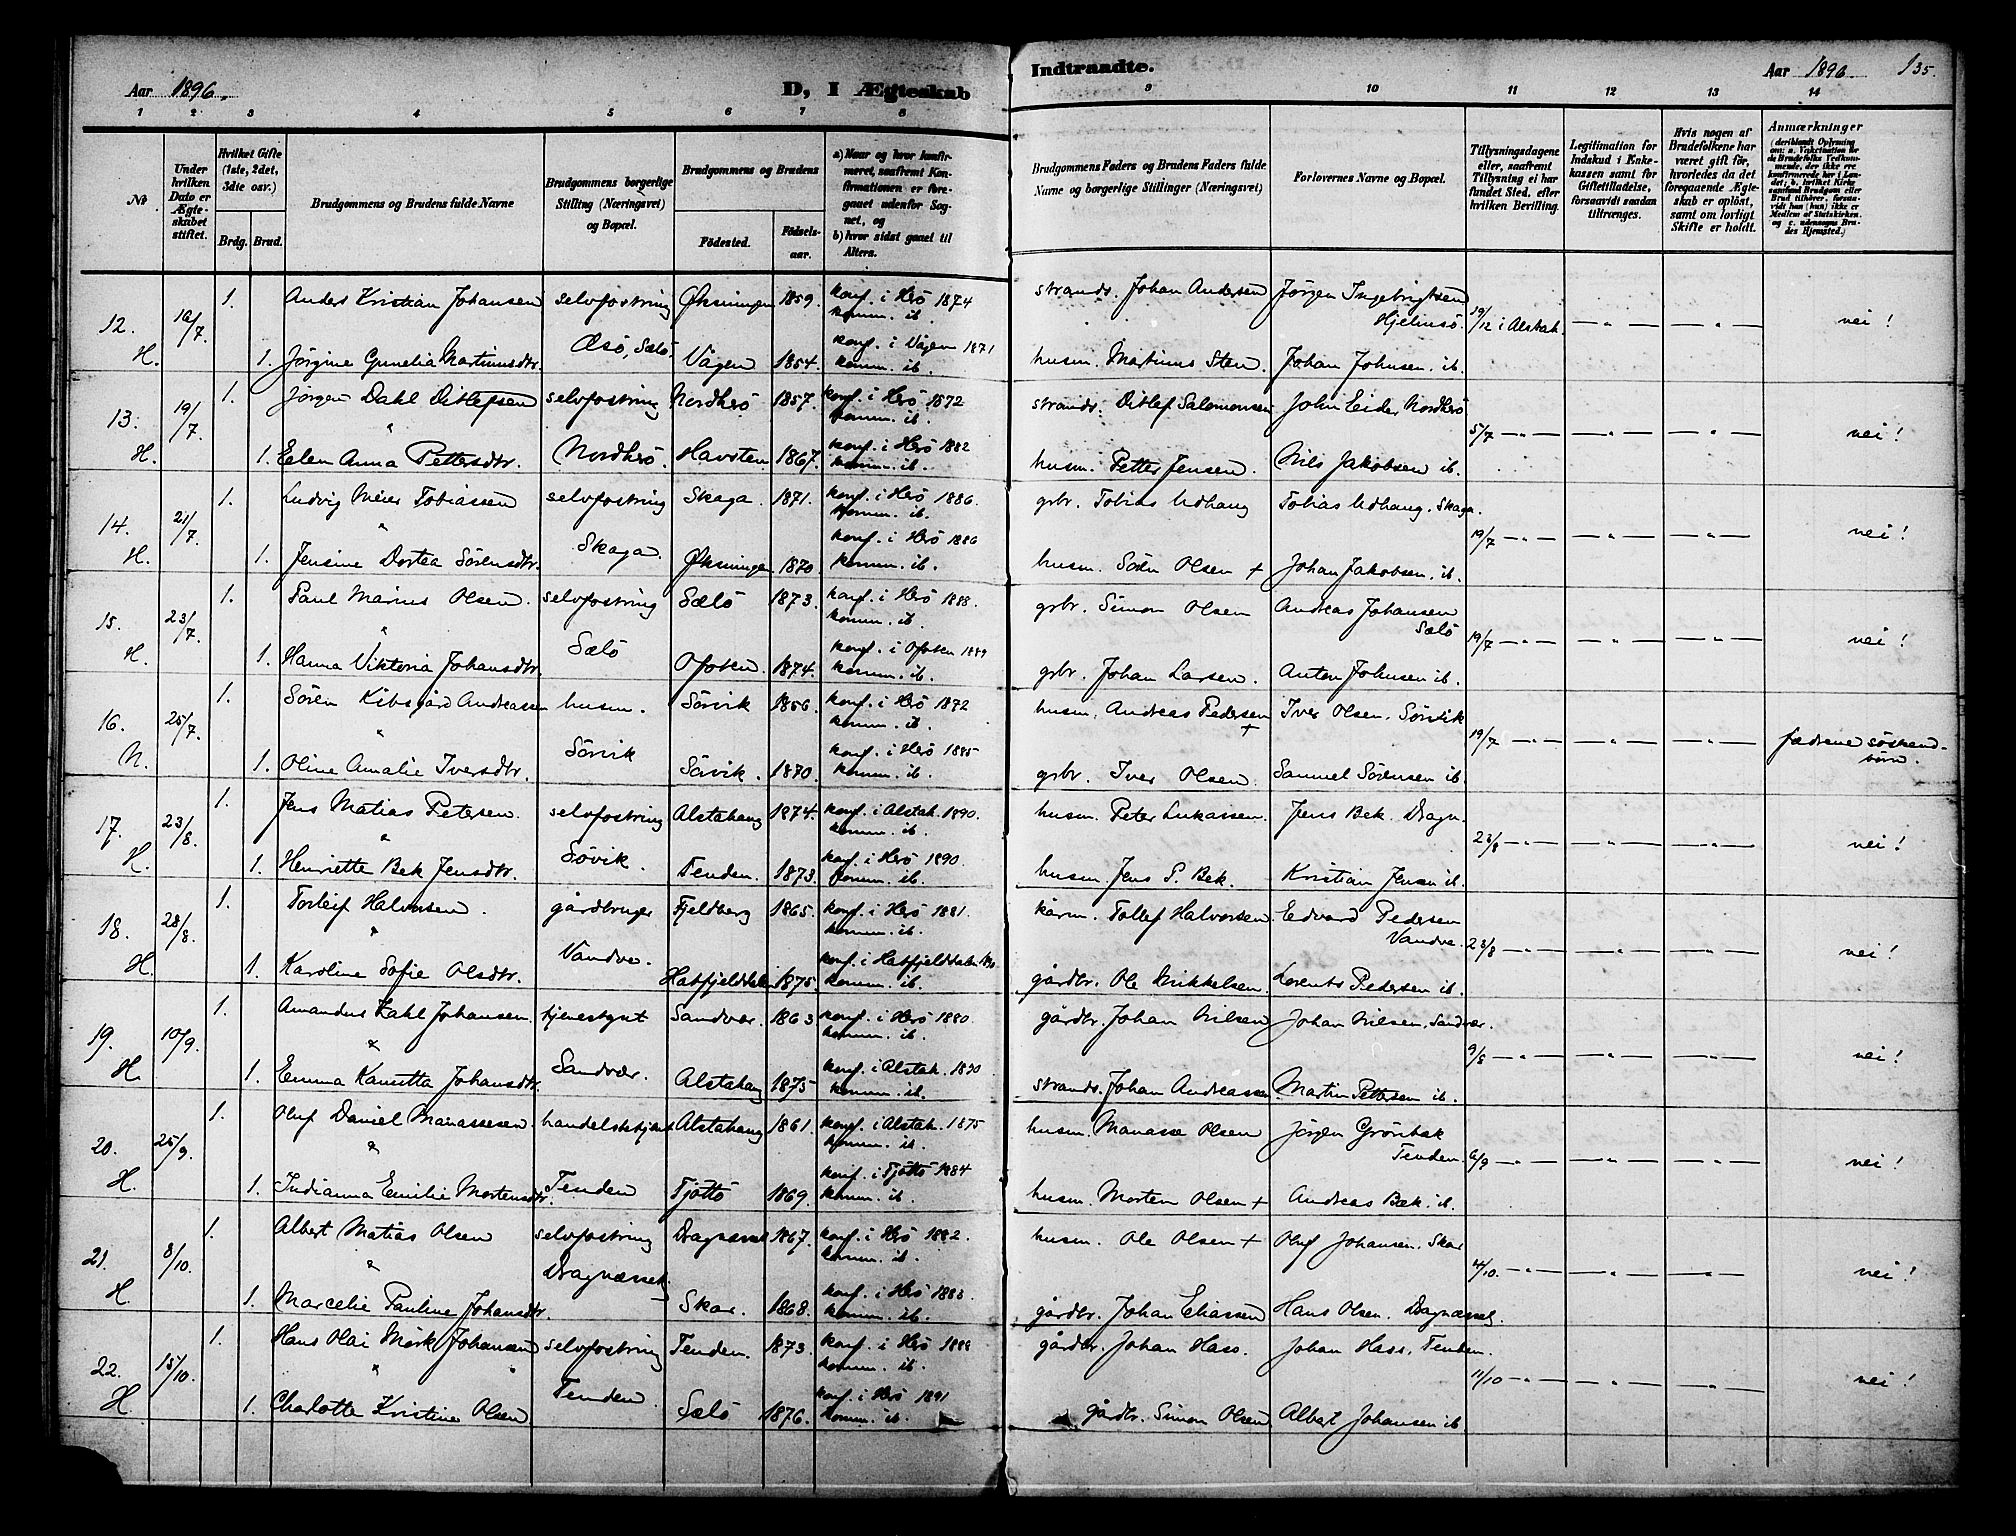 Aar 1896.
D, I Ægteskab
Indtraadte.
Aar 1896.
135.
1 2 3 4 5 6 7 8 9 10 11 12 13 14
No.
Under hvilken Dato er Ægteskabet stiftet.
Hvilket Gifte (1ste, 2det, 3die osv.)
Brdg. Brud.
Brudgommens og Brudens fulde Navne
Brudgommens borgerlige Stilling (Næringsvei) og Bopæl.
Brudgommens og Brudens
Födested. Födselsaar.
a) Naar og hvor konfirmeret, saafremt Konfirmationen er foregaaet udenfor Sognet, og
b) hvor sidst gaaet til Alters.
Brudgommens Faders og Brudens Faders fulde Navne og borgerlige Stillinger (Næringsvei)
Forlovernes Navne og Bopæl.
Tillysningsdagene eller, saafremt Tillysning ei har fundet Sted, efter hvilken Bevilling.
Legitimation for Indskud i Enkekassen samt for Giftetilladelse, forsaavidt saadan tiltrænges.
Hvis nogen af Brudefolkene har været gift för, hvorledes da det foregaaende Ægteskab er oplöst, samt om lovligt Skifte er holdt.
Anmærkninger
12. 16/7 1. Anders Kristian Johansen selvfostring Øksningen 1859. konf. i Herö 1874 komm. ib. strands. Johan Andersen Jørgen Ingebrigtsen Hjelmsö. 19/12 i Alstah. — " — — " — nei!
H. 1. Jørgine Gunelia Martinusdtr. Æsö, Sælö Vågen 1854. konf. i Vågen 1871 komm. ib. husm. Martinus Sten Johan Johnsen. ib.
13. 19/7 1. Jørgen Dahl Ditlefsen selvfostring Nordherö 1857. konf. i Herö 1872 komm. ib. strands. Ditlef Salomonsen John Eider Nordherö 5/7 — " — — " — — " — nei!
H. 1. Elen Anna Pettersdtr. Nordherö. Havsten 1867. konf. i Herö 1882 komm. ib. husm. Petter Jensen. Nils Jakobsen ib.
14. 21/7 1. Ludvig Meier Tobiassen selvfostring Skaga. 1871. konf. i Herö 1886. komm. ib. grbr. Tobias Udhaug Tobias Udhaug. Skaga. 19/7 — " — — " — — " — nei!
H. 1. Jensine Dortea Sörensdtr. Skaga. Øksningen 1870. konf. i Herö 1886 komm. ib. husm. Sören Olsen + Johan Jakobsen. ib.
15. 23/7 1. Paul Marius Olsen. selvfostring Sælö 1873. konf. i Herö 1888. komm. ib. grbr. Simon Olsen Andreas Johansen Sælö 19/7 — " — — " — — " — nei!
H. 1. Hanna Viktoria Johansdtr. Sælö Ofoten 1874. konf. i Ofoten 1889 komm. ib. grbr. Johan Larsen. Anton Johnsen ib.
16. 25/7 1. Sören Kibsgård Andreassen husm. Sörvik 1856. konf. i Herö 1872 komm. ib. husm. Andreas Pedersen + Iver Olsen. Sörvik 19/7 — " — — " — — " — fædrene söskendbörn.
N. 1. Oline Amalie Iversdtr. Sörvik Sörvik. 1870. konf. i Herö 1885 komm. ib. grbr. Iver Olsen. Samuel Sörensen ib.
17. 23/8. 1. Jens Matias Petersen. selvfostring Alstahaug 1874. konf. i Alstah. 1890. komm. ib. husm. Peter Lukassen. Jens Bek. Dragn. 23/8 — " — — " — — " — nei!
H. 1. Henriette Bek Jensdtr. Sövik. Tenden. 1873. konf. i Herö 1890. komm. ib. husm. Jens P. Bek. Kristian Jensen ib.
18. 28/8. 1. Torleif Halvorsen. gårdbruger Fjeldberg 1865. konf. i Herö 1881. komm. ib. kårm. Tollef Halvorsen Edvard Pedersen Vandve. 23/8 — " — — " — — " — nei!
H. 1. Karoline Sofie Olsdtr. Vandve. Hatfjelddalen 1875. konf. i Hatfjelddalen komm. ib. gårdbr. Ole Mikkelsen. Lorents Pedersen ib.
19. 10/9. 1. Amandus Dahl Johansen. tjenestgut Sandvær. 1863 konf. i Herö 1880. komm. ib. gårdbr. Johan Nilsen Johan Nilsen. Sandvær. 9/8 — " — — " — — " — nei!
H. 1. Emma Kanutta Johansdtr. Sandvær. Alstahaug 1875 konf. i Alstah. 1890 komm. ib. strands. Johan Andreassen. Martin Pettersen ib.
20. 25/9. 1. Oluf Daniel Manassesen handelsbetjent Alstahaug 1861 konf. i Alstah. 1875 komm. ib. husm. Manasse Olsen Jörgen Grönbek Tenden. 6/9 — " — — " — — " — nei!
H. 1. Indianna Emilie Mortensdtr. Tenden Tjöttö 1869. konf. i Tjöttö 1884 komm. ib. husm. Morten Olsen + Andreas Bek. ib.
21. 8/10. 1. Albert Matias Olsen selvfostring Dragnæsset 1867. konf. i Herö 1882. komm. ib. husm. Ole Olsen + Oluf Johansen. Skar 4/10. — " — — " — — " — nei!
H. 1. Marcelie Pauline Johansdtr. Dragnæsset Skar. 1868. konf. i Herö 1883. komm. ib. gårdbr. Johan Eliassen Hans Olsen. Dragnæsset.
22. 15/10. 1. Hans Olai Mörk Johansen selvfostring Tenden. 1873. konf. i Herö 1888 komm. ib. gårdbr. Johan Hass. Johan Hass. Tenden. 11/10 — " — — " — — " — nei!
H. 1. Charlotte Kristine Olsen Tenden Sælö 1876. konf. i Herö 1891 komm. ib. gårdbr. Simon Olsen Albert Johansen ib.